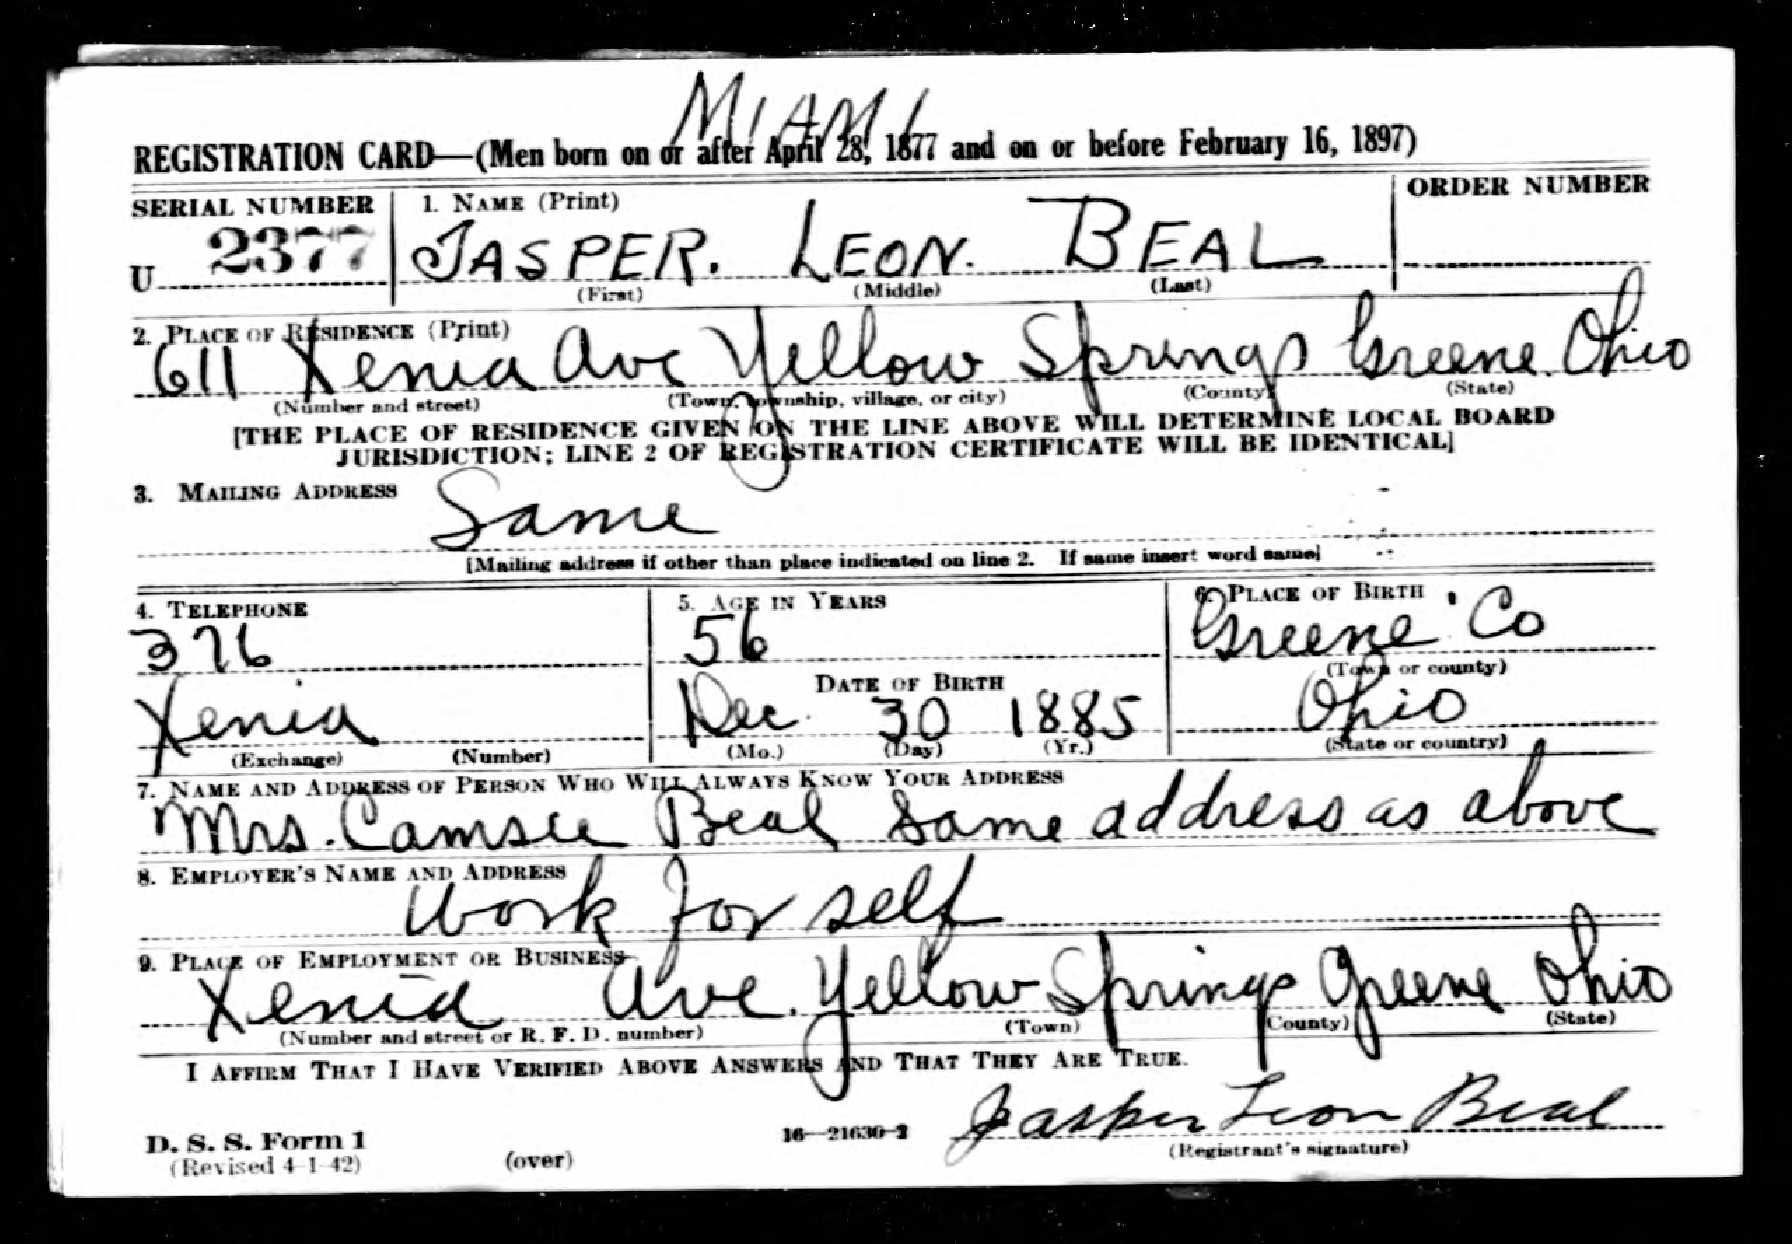 MIAMI
REGISTRATION CARD—(Men born on or after April 28, 1877 and on or before February 16, 1897)
SERIAL NUMBER 1. NAME (Print) ORDER NUMBER
U 2377 JASPER. LEON. BEAL
(First) (Middle) (Last)
2. PLACE OF RESIDENCE (Print)
611 Xenia Ave Yellow Springs Greene Ohio
(Number and street) (Town, township, village, or city) (County) (State)
[THE PLACE OF RESIDENCE GIVEN ON THE LINE ABOVE WILL DETERMINE LOCAL BOARD
JURISDICTION; LINE 2 OF REGISTRATION CERTIFICATE WILL BE IDENTICAL]
3. MAILING ADDRESS
Same
[Mailing address if other than place indicated on line 2. If same insert word same]
4. TELEPHONE 5. AGE IN YEARS 6. PLACE OF BIRTH
376 56 Greene Co
(Town or county)
DATE OF BIRTH
Xenia Dec 30 1885 Ohio
(Exchange) (Number) (Mo.) (Day) (Yr.) (State or country)
7. NAME AND ADDRESS OF PERSON WHO WILL ALWAYS KNOW YOUR ADDRESS
Mrs. Beal Same address as above
8. EMPLOYER'S NAME AND ADDRESS
Work for self
9. PLACE OF EMPLOYMENT OR BUSINESS
Xenia Ave. Yellow Springs Greene Ohio
(Number and street or R. F. D. number) (Town) (County) (State)
I AFFIRM THAT I HAVE VERIFIED ABOVE ANSWERS AND THAT THEY ARE TRUE.
Jasper Leon Beal
D. S. S. Form 1 16—21630-2 (Registrant's signature)
(Revised 4-1-42) (over)